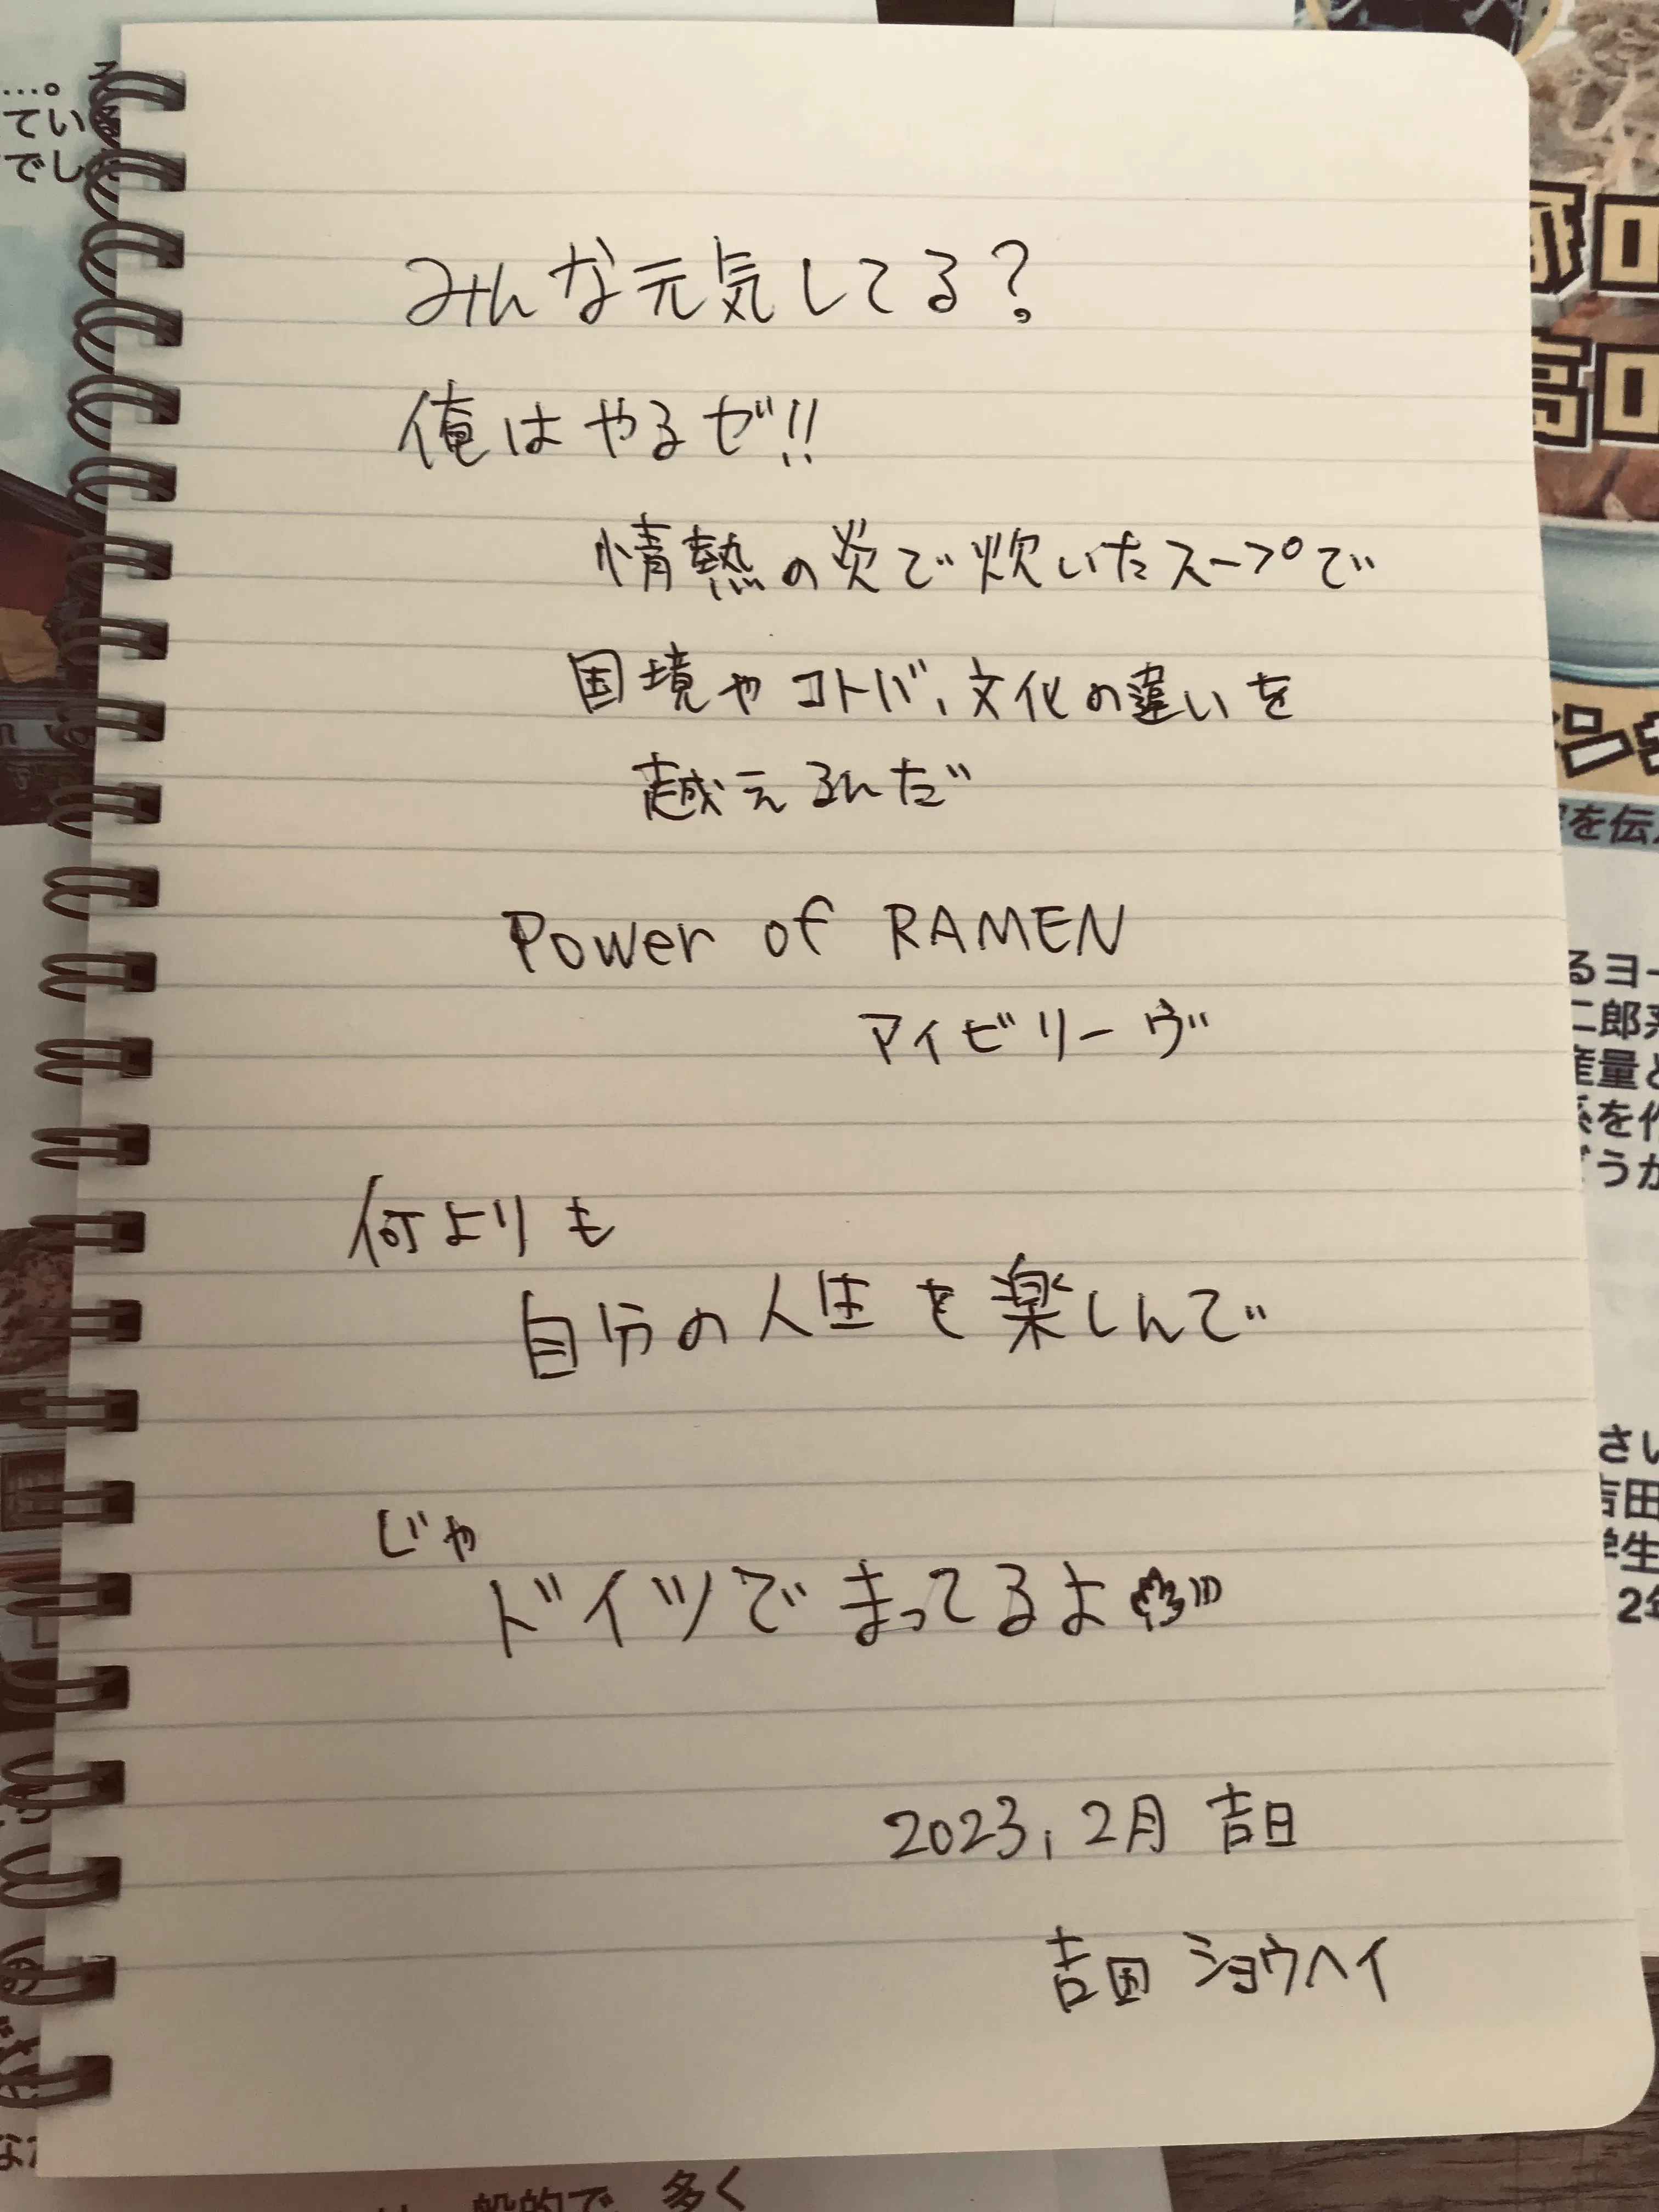 みんな元気してる?
俺はやるゼ!!
情熱の炎で炊いたスープで
国境やコトバ、文化の違いを
越えるんだ
Power of RAMEN
アイビリーヴ
何よりも
自分の人生を楽しんで
じゃ
ドイツでまってるよ
2023, 2月 吉日
吉田 ショウヘイ
…。
てい
でし
を伝
るヨー
二郎系
産量と
系を作
どうか
さい
吉田
学生
2年
般的で、多く